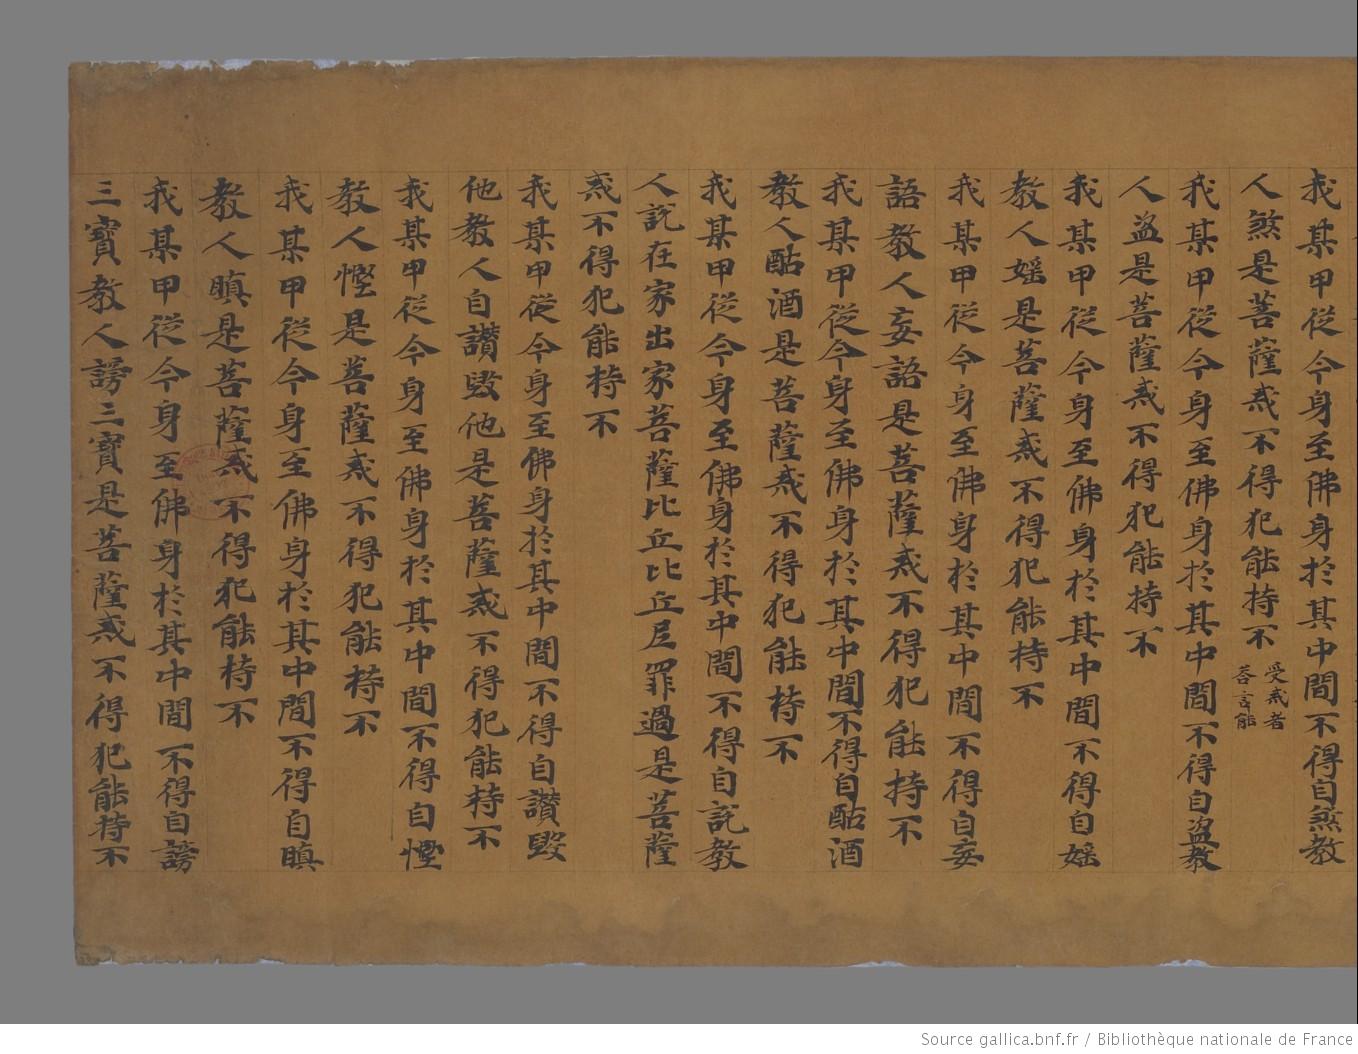 我某甲從今身至佛身於其中間不得自煞教
人煞是菩薩戒不得犯能持不 受戒者荅言能
我某甲從今身至佛身於其中間不得自盜教
人盜是菩薩戒不得犯能持不
我某甲從今身至佛身於其中間不得自婬
教人婬是菩薩戒不得犯能持不
我某甲從今身至佛身於其中間不得自妄
語教人妄語是菩薩戒不得犯能持不
我某甲從今身至佛身於其中間不得自酤酒
教人酤酒是菩薩戒不得犯能持不
我某甲從今身至佛身於其中間不得自說教
人說在家出家菩薩比丘比丘尼罪過是菩薩
戒不得犯能持不
我某甲從今身至佛身於其中間不得自讃毀
他教人自讃毀他是菩薩戒不得犯能持不
我某甲從今身至佛身於其中間不得自慳
教人慳是菩薩戒不得犯能持不
我某甲從今身至佛身於其中間不得自瞋
教人瞋是菩薩戒不得犯能持不
我某甲從今身至佛身於其中間不得自謗
三寶教人謗三寶是菩薩戒不得犯能持不
Source gallica.bnf.fr / Bibliothèque nationale de France